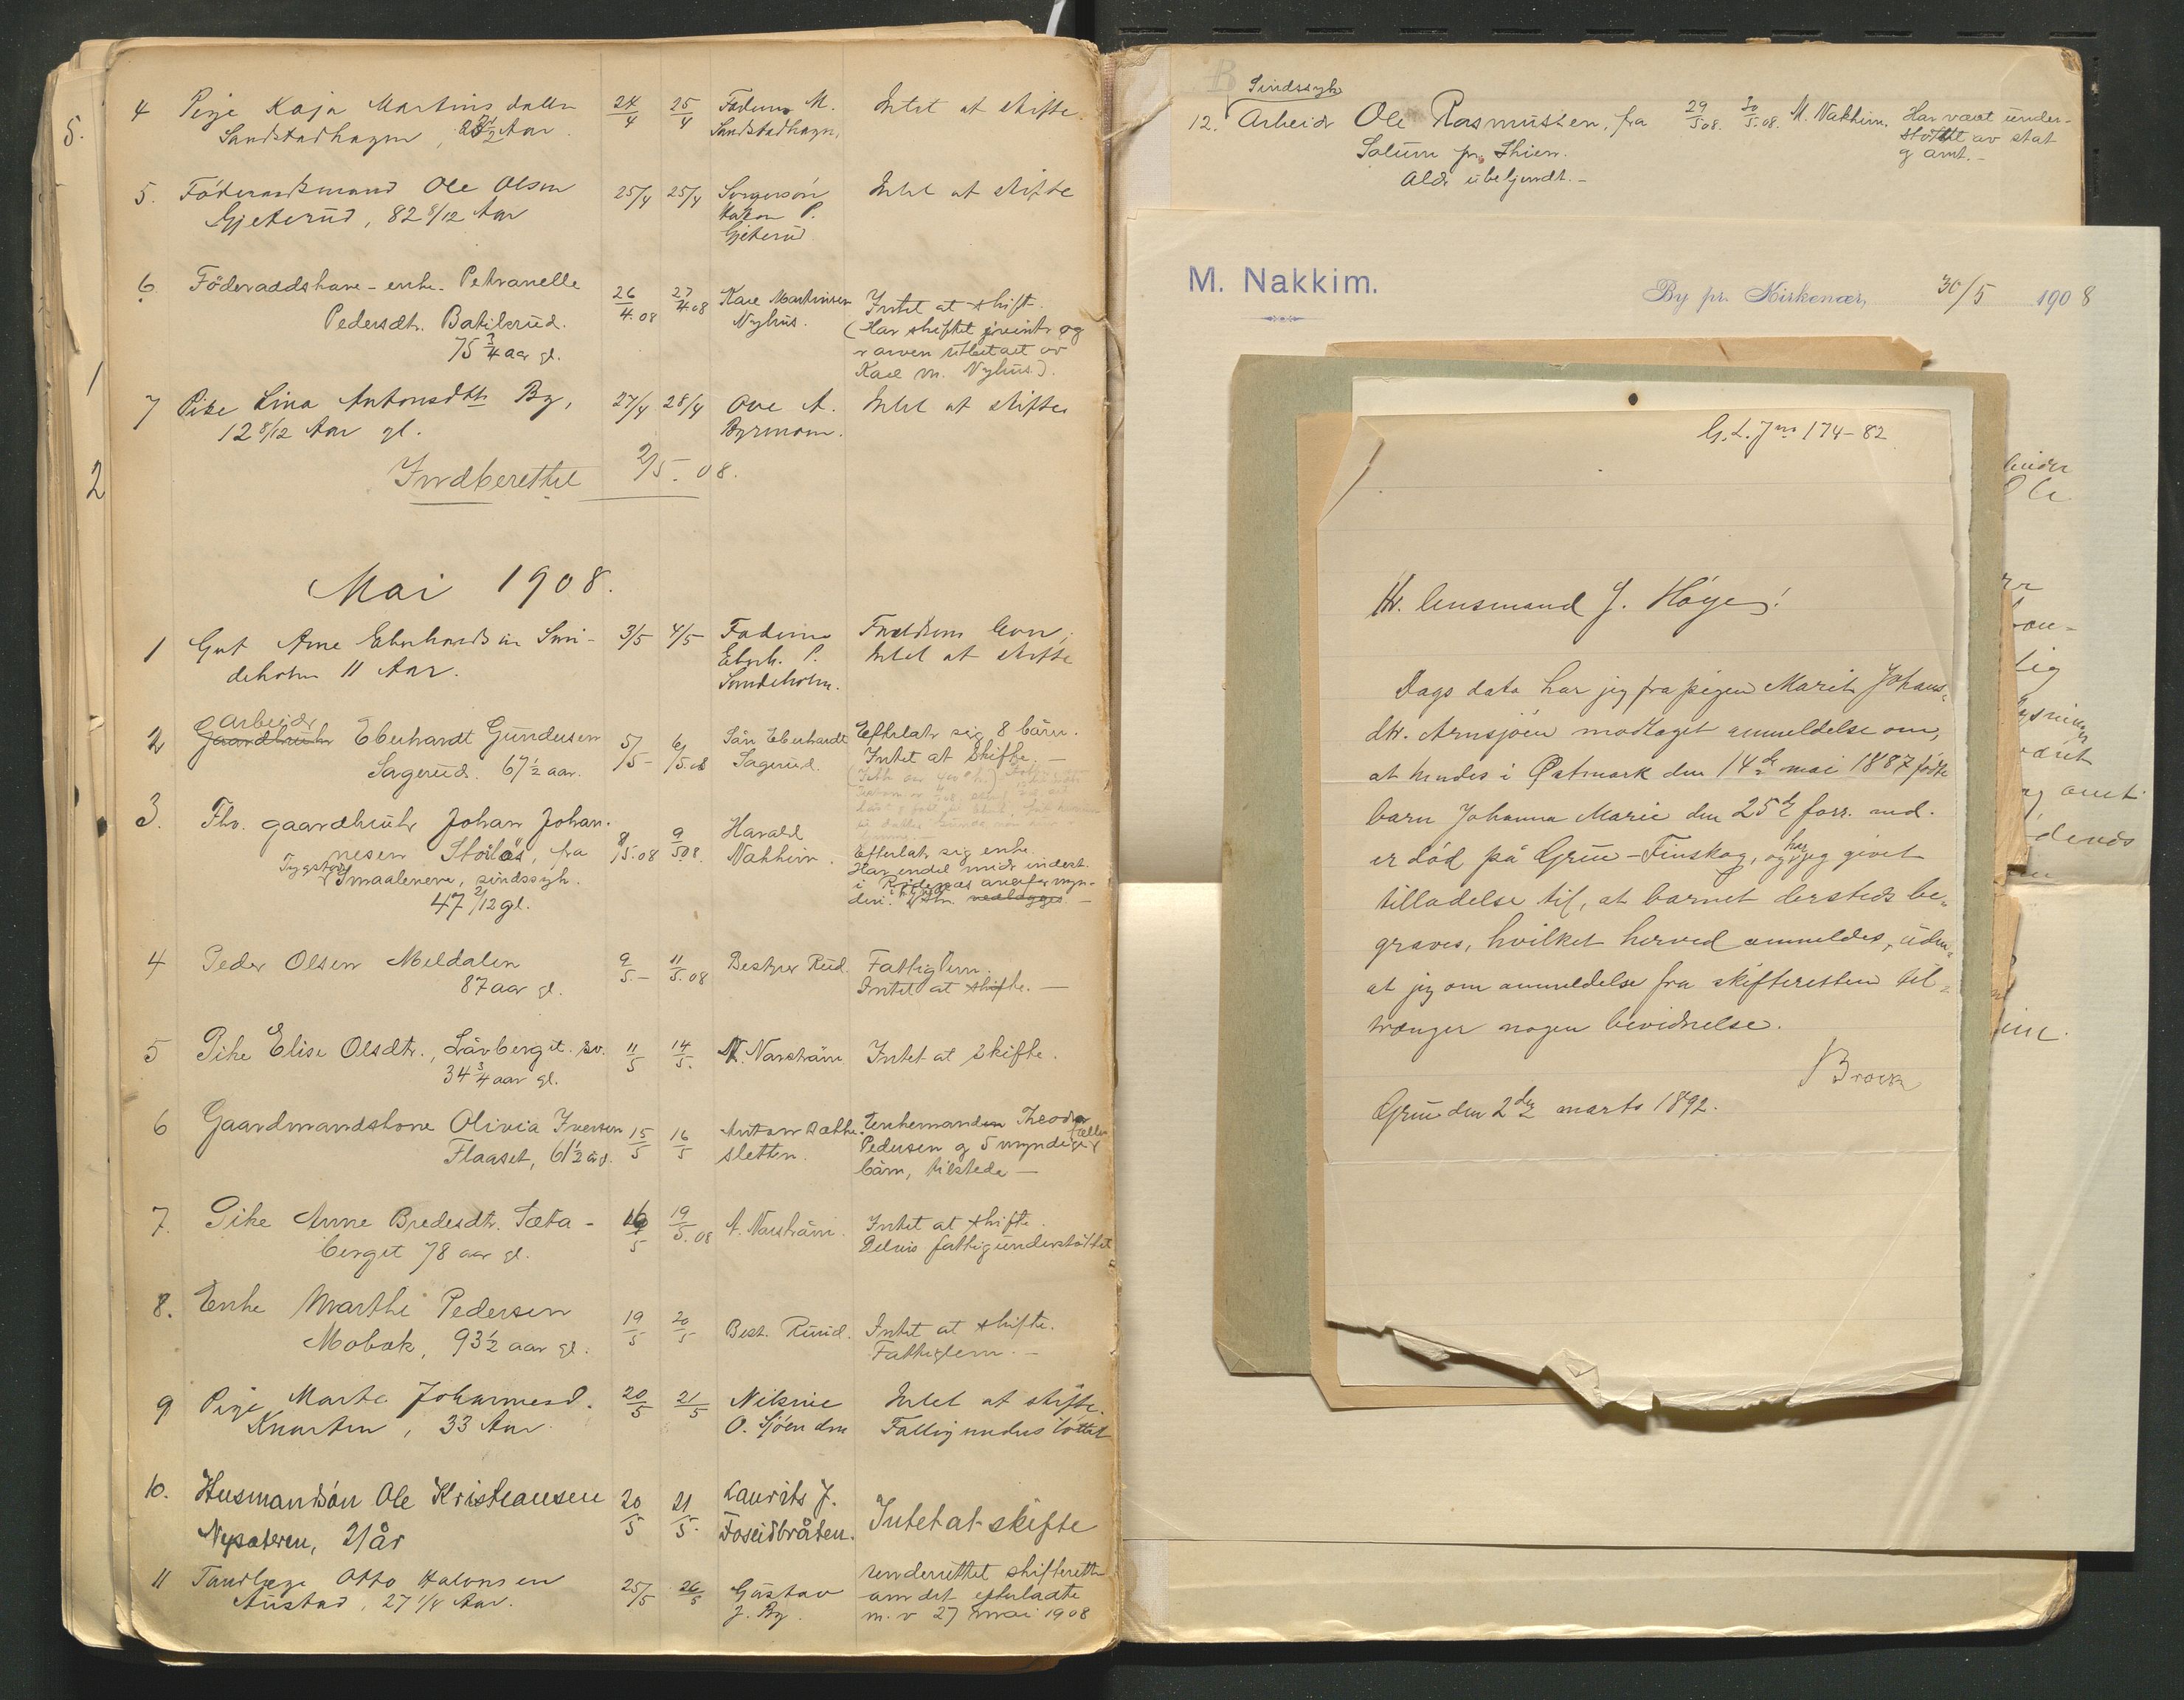 5.
1
2
4 Pige Kaja Martins datter 24/4 25/4 Faderen M. Intet at skifte.
Sandstadhagen, Aar. Sandstadhagen,
5. Föderaadsmand Ole Olsen 25/4 25/4 Intet at skifte
Gjeterud, 82 8/12 Aar Hakon P.
Gjeterud
6. Föderaadskone - enke. Petranelle 26/4.08 27/4.08 Kare Martinsen Intet at skift.
Pedersdtr. Batikrud. Nyhus. (Har skiftet og
75 3/4 aar gl. arven utbetalt av
Kare M. Nyhus).
7 Pike Lina Antonsdtr By, 27/4 28/4 Ove A. Intet at skifte
12 8/12 Aar gl. Byrmom.
Indberettet 2/5.08.
Mai 1908.
1 Gut Arne Eberhardsen Sun- 3/5 4/5 Faderen
deholm 11 Aar. Eberh. P. Intet at skifte
Sundeholm.
2 Arbeider
Gaardbruker Eberhardt Gundersen 5/5- 6/5.08 Sön Eberhardt Efterlatr sig 8 bärn.
Sagerud. 67 1/2 aar. Sagerud. Intet at skifte. -
3. Fhv. gaardbruker Johan Johan- 8/5.08 9/5.08 Harald
nesen Storlös, fra Nakkim. Efterlatr sig enke.
Smaalenene, sindssyk. Har endel
47 2/12 gl.
4 Peder Olsen Meldalen 9/5.- 11/5.08 Bestyrer Rud. Fattiglem.
87 aar gl. Intet at skifte. -
5 Pike Elise Olsdtr., Lövberget. sv. 11/5 14/5. Intet at skifte.
34 3/4 aar gl.
6 Gaardmandskone Olivia Iversen 15/5 16/5 Anton Sæthe- Enkemanden Theodor
Flaaset, 61 1/2 sletten. Pedersen og 5 myndige
bärn, tilstede -
7. Pike Anne Bredesdtr. Sæta- 16/5 19/5.08 Intet at skifte.
berget 78 aar gl. Delvis fattigunderstöttet
8. Enke Marthe Pedersen 19/5 20/5 Best. Ruud. Intet at skifte.
Mobæk, 93 1/2 aar gl. Fattiglem. -
9 Pige Marte Johannesd. 20/5 21/5 Nilsine Intet at skifte.
Knarten, 33 Aar. O. Sjöenden Fattig understöttet
10. Husmandsön Ole Kristiansen 20/5 21/5. Laurits J. Intet at skifte
Nysæteren, 21 år Foseidbråten.
11 Tandlæge Otto Hakonsen 25/5 26/5 Gustav Underrettet skifterett
Austad, 27 1/4 Aar. J. By. om det efterladte
m. v 27 mai 1908
B
Sindssyk
12. Arbeidr Ole Rasmussen, fra 29/5 08. 30/5.08. M. Nakkim. Har vært under-
Solum pr. Skien. støttet av stat
Aldr ubekjendt. - og amt. -
M. Nakkim. By pr. Kirkenær, 30/5 1908
G. L. Jno 174-82
Hr. lensmand J. Høyes!
Dags dato har jeg fra pigen Marit Johans-
dtr. Arnsjøen modtaget anmeldelse om,
at hendes i Østmark den 14de mai 1887 fødte
barn Johanna Marie den 25de forr. md.
er død på Grue-Finskog, og har jeg givet
tilladelse til, at barnet dersteds be-
graves, hvilket herved anmeldes, uden
at jeg om anmeldelse fra skifteretten til-
trænger nogen bevidnelse.
Brock
Grue den 2den marts 1892.